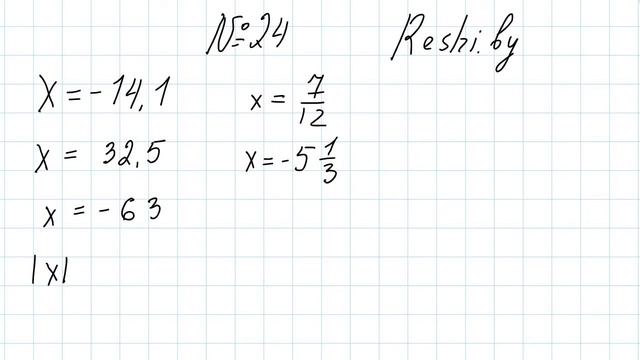 №24 Reshi.by
x = -14,1 x = 7/12
x = 32,5 x = -5 1/3
x = -63
|x|